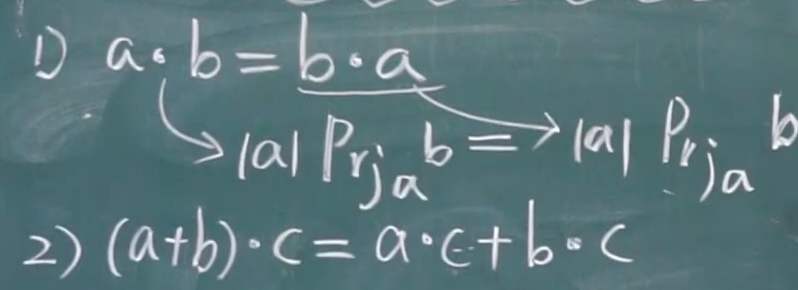 1) a·b=b·a
|a| Prj_a b = |a| Prj_a b
2) (a+b)·c=a·c+b·c